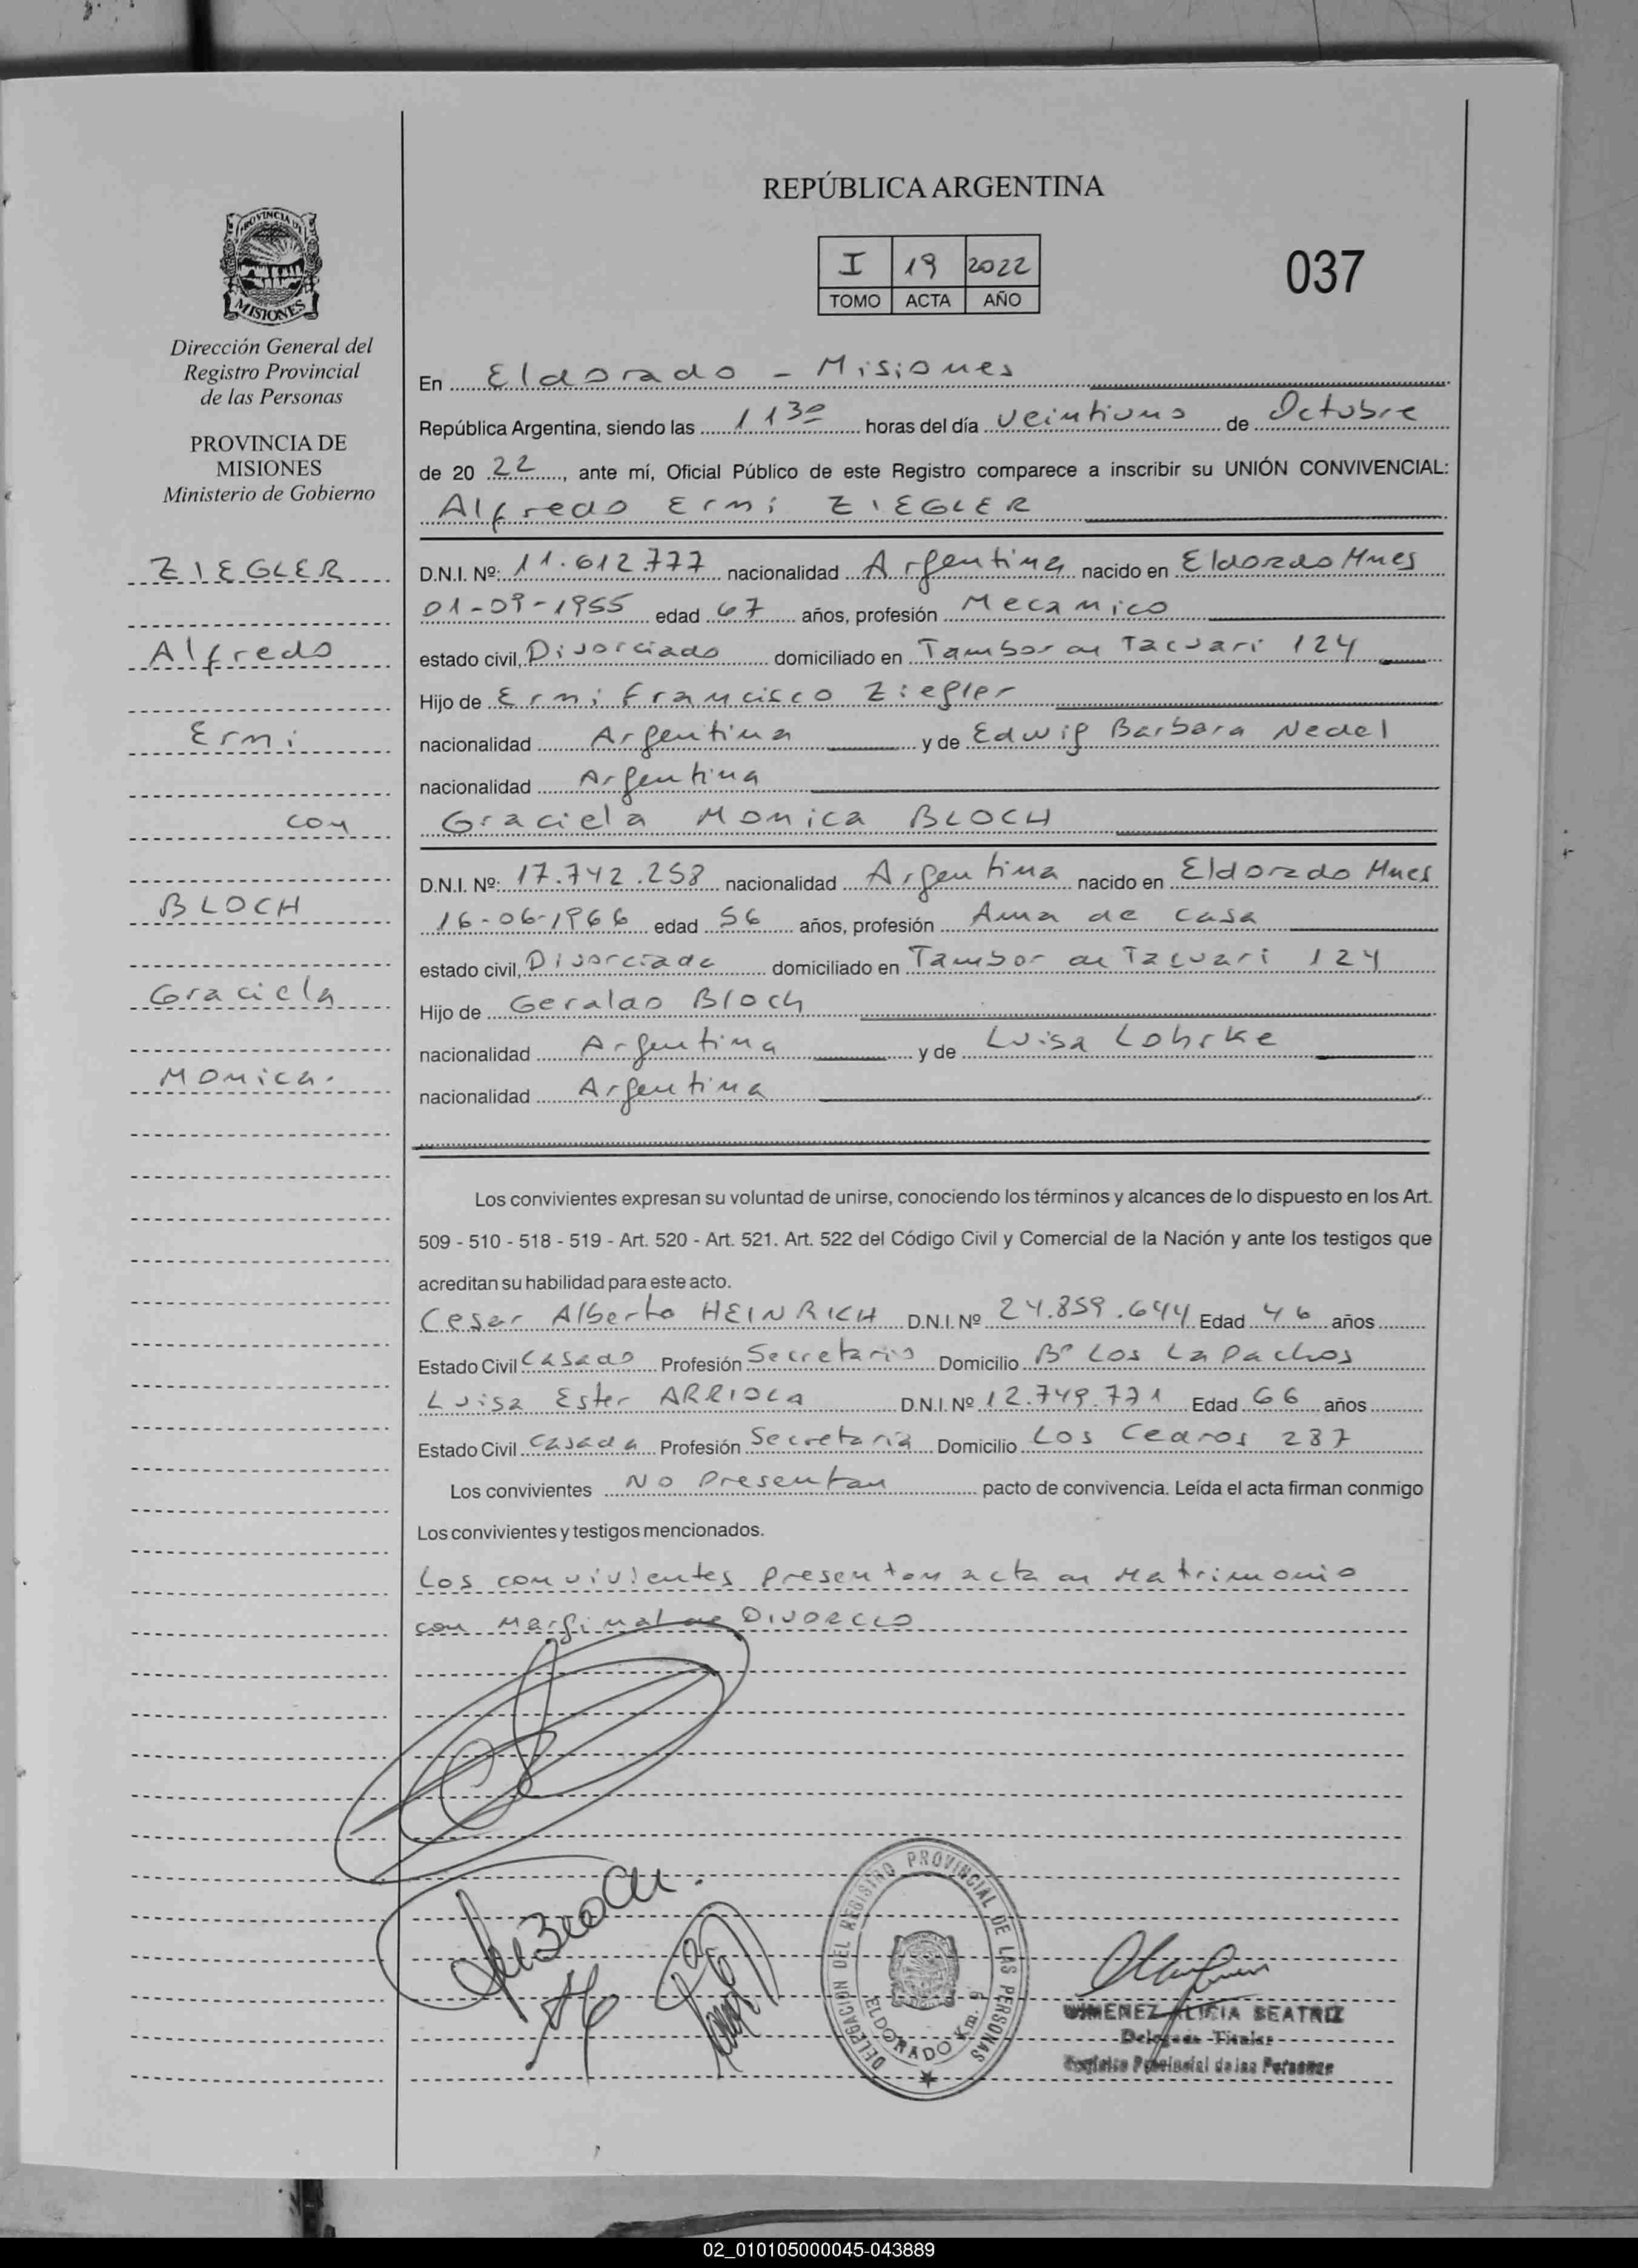 REPÚBLICA ARGENTINA
I 19 2022
TOMO ACTA AÑO
037
PROVINCIA DE
MISIONES
Dirección General del
Registro Provincial
de las Personas
PROVINCIA DE
MISIONES
Ministerio de Gobierno
ZIEGLER
Alfredo
Ermi
con
BLOCH
Graciela
Monica.
En Eldorado - Misiones
República Argentina, siendo las 11 30 horas del día veintiuno de Octubre
de 20 22, ante mí, Oficial Público de este Registro comparece a inscribir su UNIÓN CONVIVENCIAL:
Alfredo Ermi ZIEGLER
D.N.I. Nº: 11.612.777 nacionalidad Argentina nacido en Eldorado Mnes
01-09-1955 edad 67 años, profesión Mecanico
estado civil, Divorciado domiciliado en Tambor de Tacuari 124
Hijo de Ermi Francisco Ziegler
nacionalidad Argentina y de Edwig Barbara Nedel
nacionalidad Argentina
Graciela Monica BLOCH
D.N.I. Nº: 17.742.258 nacionalidad Argentina nacido en Eldorado Mnes
16-06-1966 edad 56 años, profesión Ama de casa
estado civil, Divorciada domiciliado en Tambor de Tacuari 124
Hijo de Geraldo Bloch
nacionalidad Argentina y de Luisa Lohrke
nacionalidad Argentina
Los convivientes expresan su voluntad de unirse, conociendo los términos y alcances de lo dispuesto en los Art.
509 - 510 - 518 - 519 - Art. 520 - Art. 521. Art. 522 del Código Civil y Comercial de la Nación y ante los testigos que
acreditan su habilidad para este acto.
Cesar Alberto HEINRICH D.N.I. Nº 24.859.644 Edad 46 años
Estado Civil Casado Profesión Secretario Domicilio Bº Los Lapachos
Luisa Ester ARRIOLA D.N.I. Nº 12.749.771 Edad 66 años
Estado Civil Casada Profesión Secretaria Domicilio Los Cedros 287
Los convivientes No Presentan pacto de convivencia. Leída el acta firman conmigo
Los convivientes y testigos mencionados.
Los convivientes presentan acta de Matrimonio
con Marginal de DIVORCIO
DELEGACION DEL REGISTRO PROVINCIAL DE LAS PERSONAS
ELDORADO Km. 9
GIMENEZ ALICIA BEATRIZ
Delegada Titular
Registro Provincial de las Personas
02_010105000045-043889